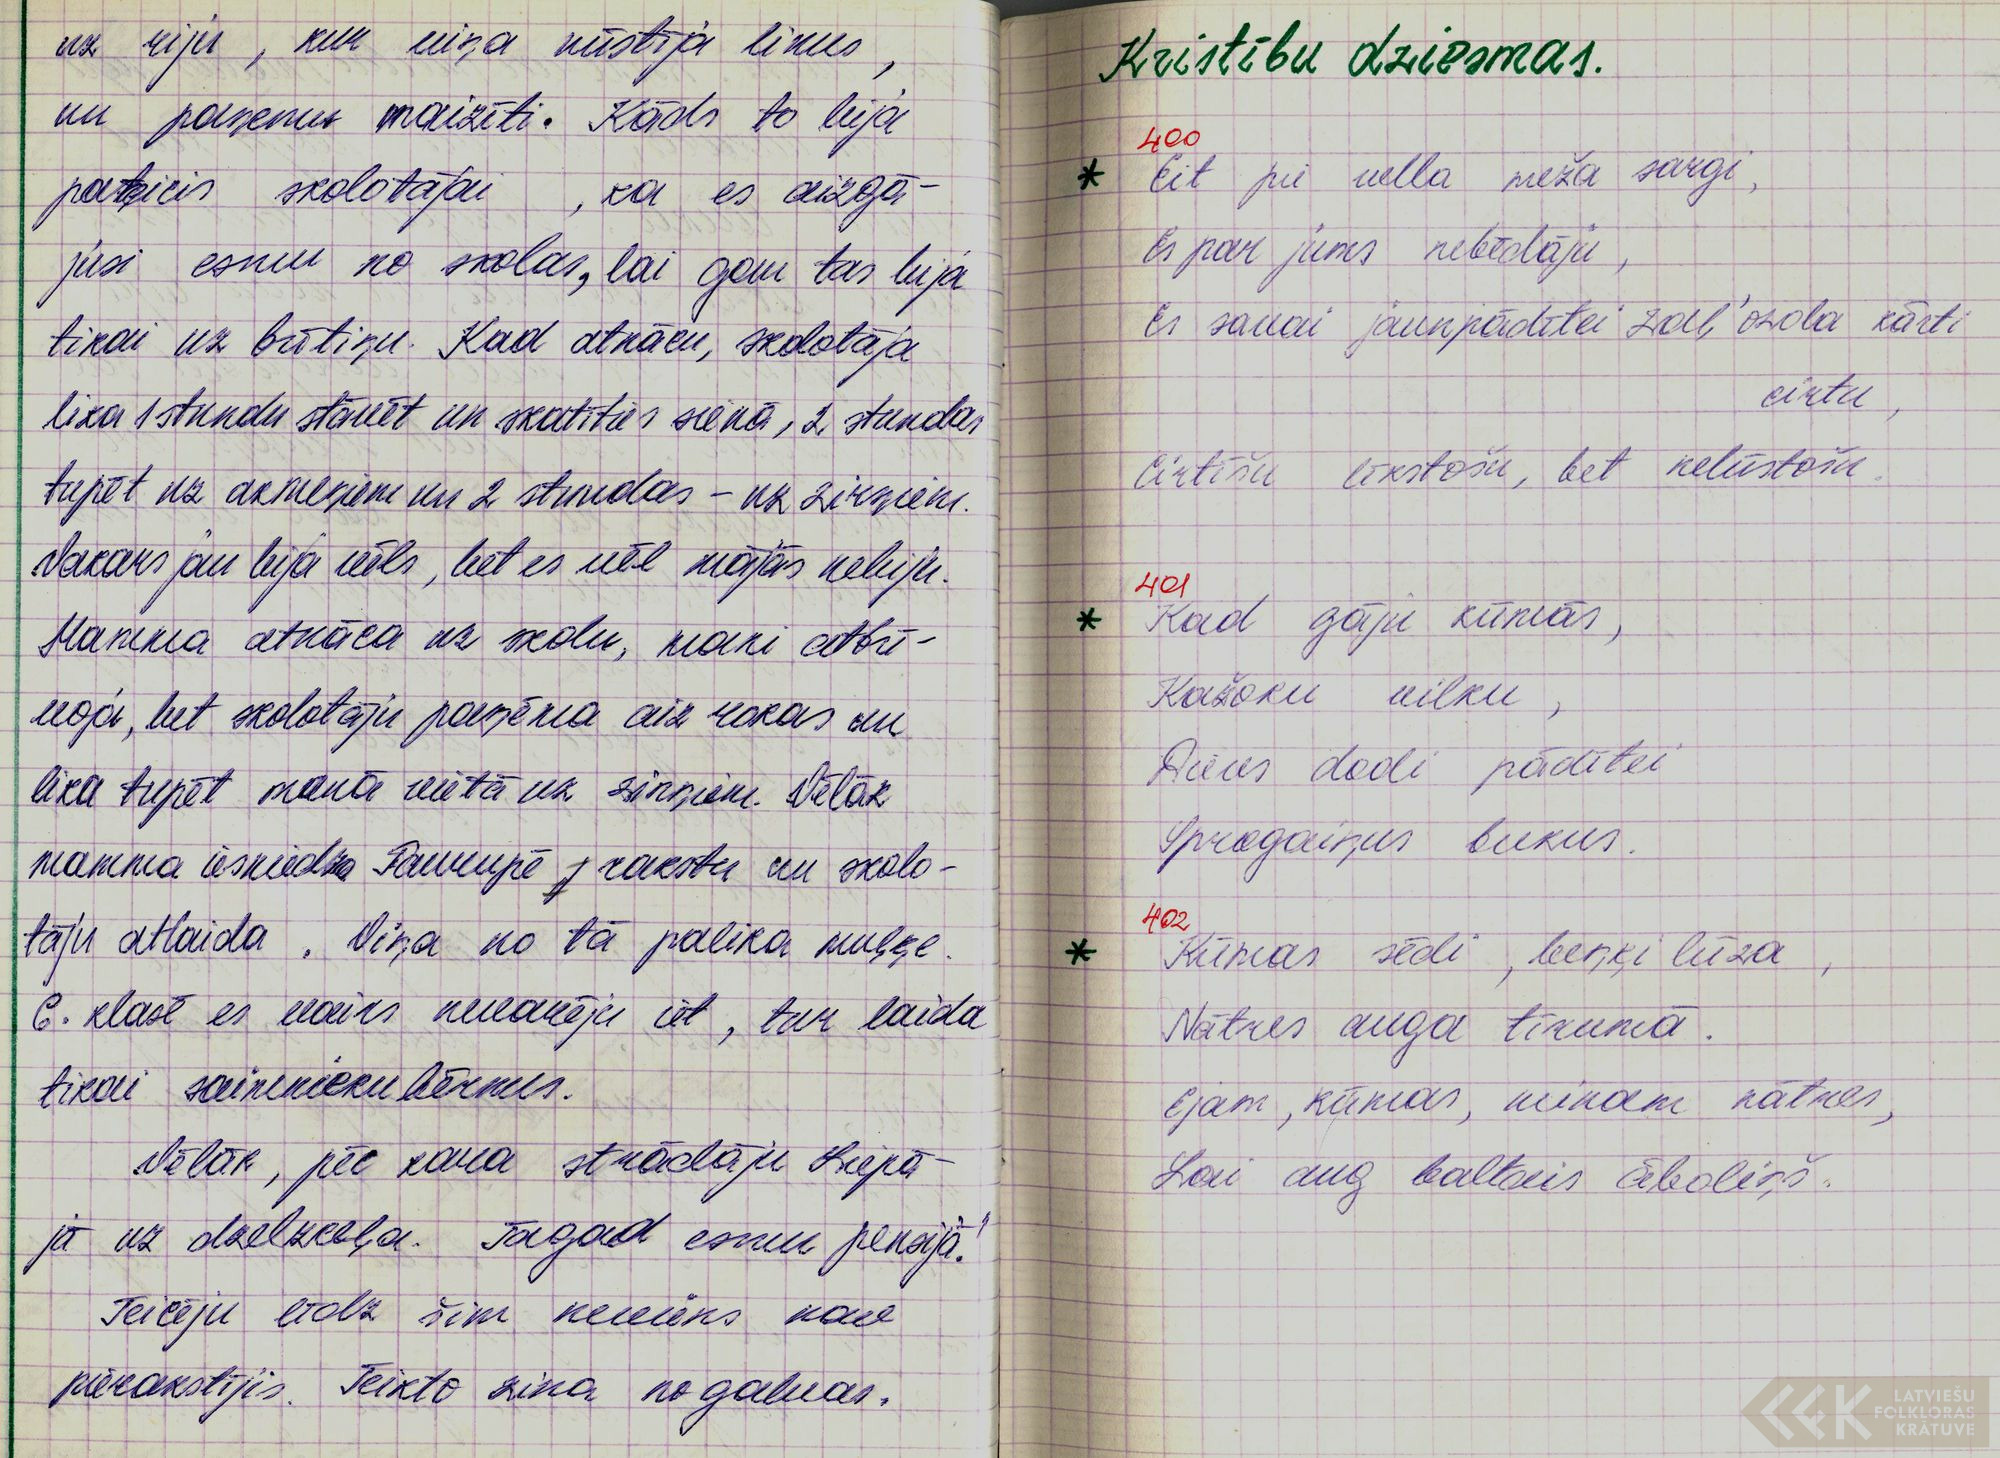 uz riju, kur viņa mīstīja linus,
un paņemu maizīti. Kāds to bija
pateicis skolotājai, ka es aizgā-
jusi esmu no skolas, lai gan tas bija
tikai uz brītiņu. Kad atnācu, skolotāja
lika 1 stundu stāvēt un skatīties sienā, 2 stundas
tupēt uz akmeņiem un 2 stundas - uz zirņiem.
Vakars jau bija vēls, bet es vēl mājās nebiju.
Mamma atnāca uz skolu, mani atbrī-
voja, bet skolotāju paņēma aiz rokas un
lika tupēt manā vietā uz zirņiem. Vēlāk
mamma iesniedza Taurupē rakstu un skolo-
tāju atlaida. Viņa no tā palika muļķe.
6. klasē es vairs nevarēju iet, tur laida
tikai saimnieku bērnus.
Vēlāk, pēc kara strādāju Liepā-
jā uz dzelzceļa. Tagad esmu pensijā."
Teicēju līdz šim neviens nav
pierakstījis. Teikto zina no galvas.
Kristību dziesmas.
400
* Eit pie vella meža sargi,
Es par jums nebēdāju,
Es savai jaunpādītei zaļ' ozola kārti
cirtu,
Cirtīšu līkstošu, bet nelūstošu.
401
* Kad gāju kūmās,
Kažoku vilku,
Dievs dodi pādītei
Sprogaiņus brukus.
402
* Kūmas sēdi, beņķi lūza,
Nātres auga tīrumā.
Ejam, kūmas, minam nātres,
Lai aug baltais āboliņš.
LATVIEŠU
FOLKLORAS
KRĀTUVE